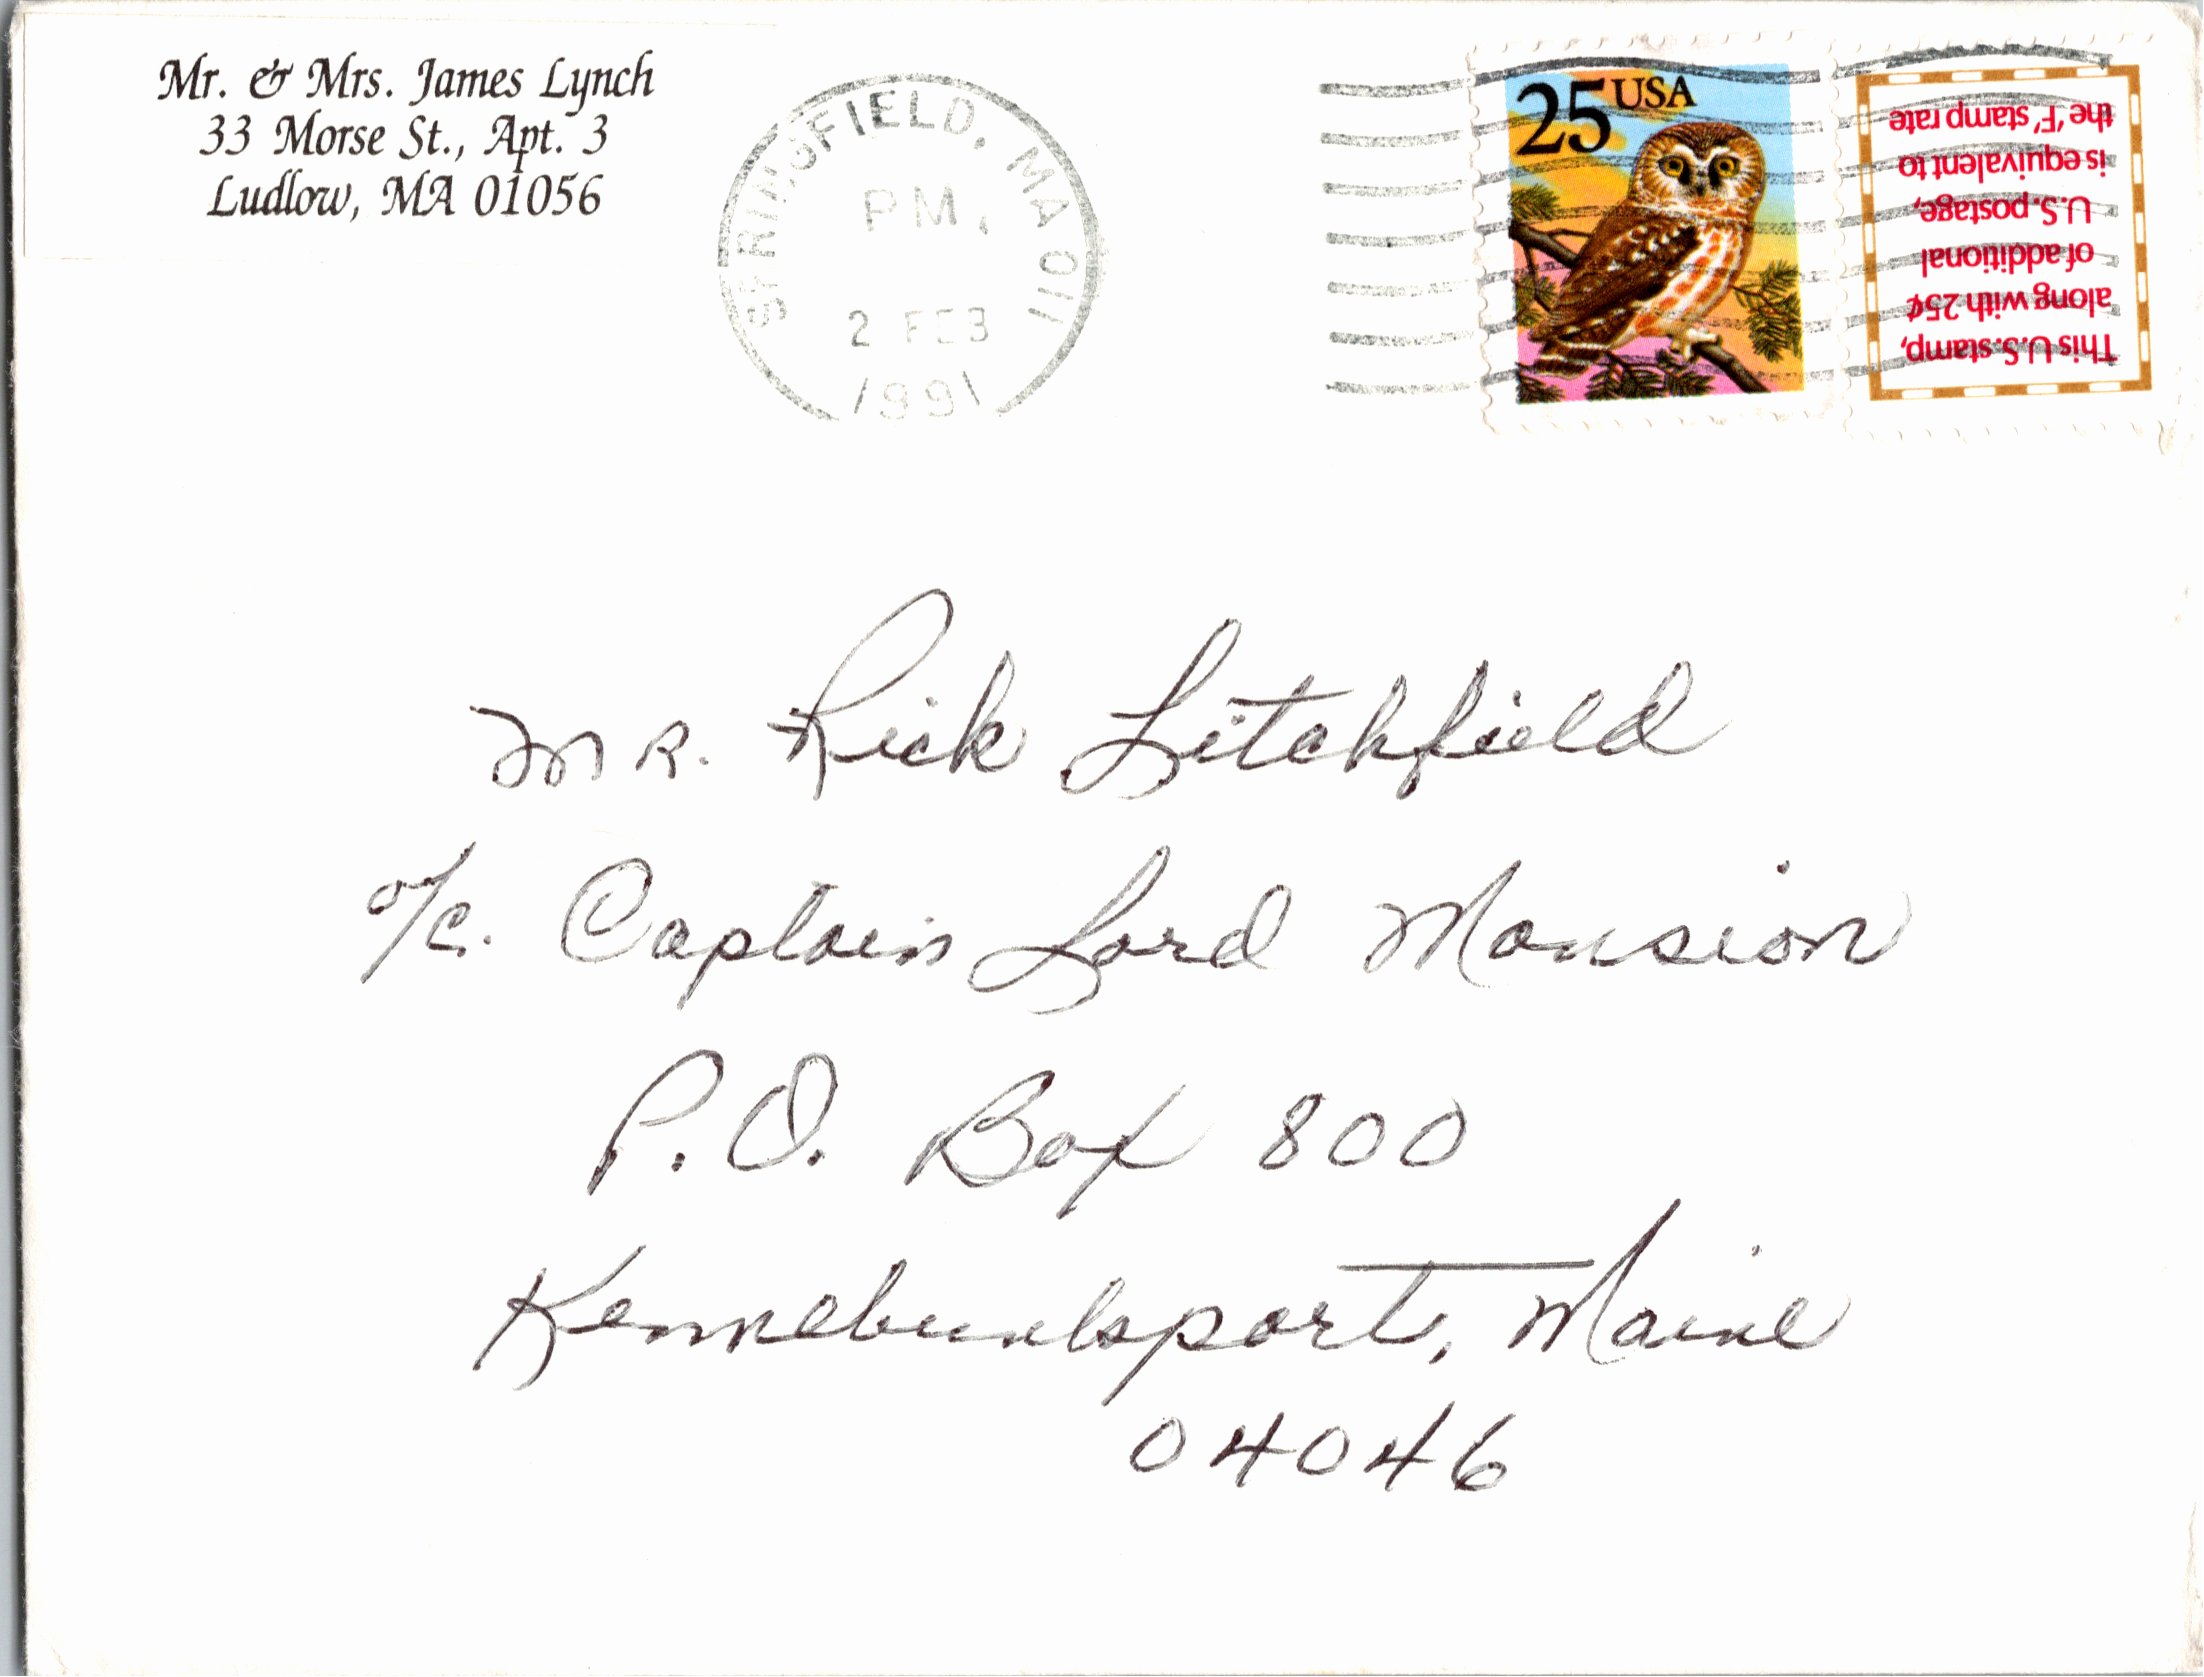 Mr. & Mrs. James Lynch
33 Morse St., Apt. 3
Ludlow, MA 01056
SPRINGFIELD, MA 011
PM
2 FEB
1991
25 USA
This U.S. stamp,
along with 25¢
of additional
U.S. postage,
is equivalent to
the 'F' stamp rate
MR. Rick Litchfield
c/o. Captain Lord Mansion
P.O. Box 800
Kennebunksport, Maine
04046